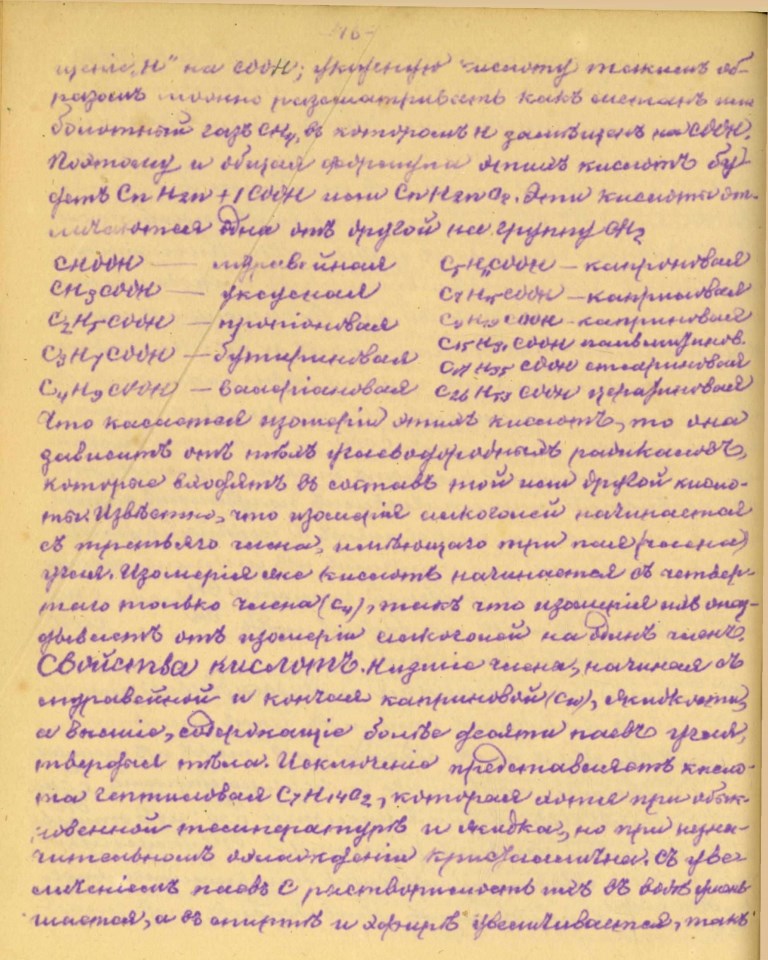 76
щеніе „Н“ на COOH; уксусную кислоту такимъ об-
разомъ можно разсматривать какъ метанъ или
болотный газъ CH4, въ которомъ Н замѣщенъ на COOH.
Поэтому и общая формула этихъ кислотъ бу-
детъ CnH2n+1COOH или CnH2nO2. Эти кислоты от-
личаются одна отъ другой на группу CH2
CHOOH — муравейная C5H11COOH — капроновая
CH3COOH — уксусная C7H15COOH — каприловая
C2H5COOH — пропіоновая C9H19COOH — каприновая
C3H7COOH — бутириновая C15H31COOH пальмитинов.
C4H9COOH — валеріановая C17H35COOH стеариновая
C26H53COOH церотиновая
Что касается изомеріи этихъ кислотъ, то она
зависитъ отъ тѣхъ углеводородныхъ радикаловъ,
которые входятъ въ составъ той или другой кисло-
ты. Извѣстно, что изомерія алкоголей начинается
съ третьяго члена, имѣющаго три пая (члена)
угля. Изомерія же кислотъ начинается съ четвер-
таго только члена (C4), такъ что изомерія ихъ опаз-
дываетъ отъ изомеріи алкоголей на одинъ членъ.
Свойства кислотъ. Низшіе члена, начиная съ
муравейной и кончая каприновой (C10), жидкости,
а высшіе, содержащіе болѣе десяти паевъ угля,
твердыя тѣла. Исключеніе представляетъ кисло-
та гептиловая C7H14O2, которая хотя при обык-
новенной температурѣ и жидка, но при незна-
чительномъ охлажденіи кристаллична. Съ уве-
личеніемъ паевъ C растворимость ихъ въ водѣ умень-
шается, а въ спиртѣ и эфирѣ увеличивается, такъ